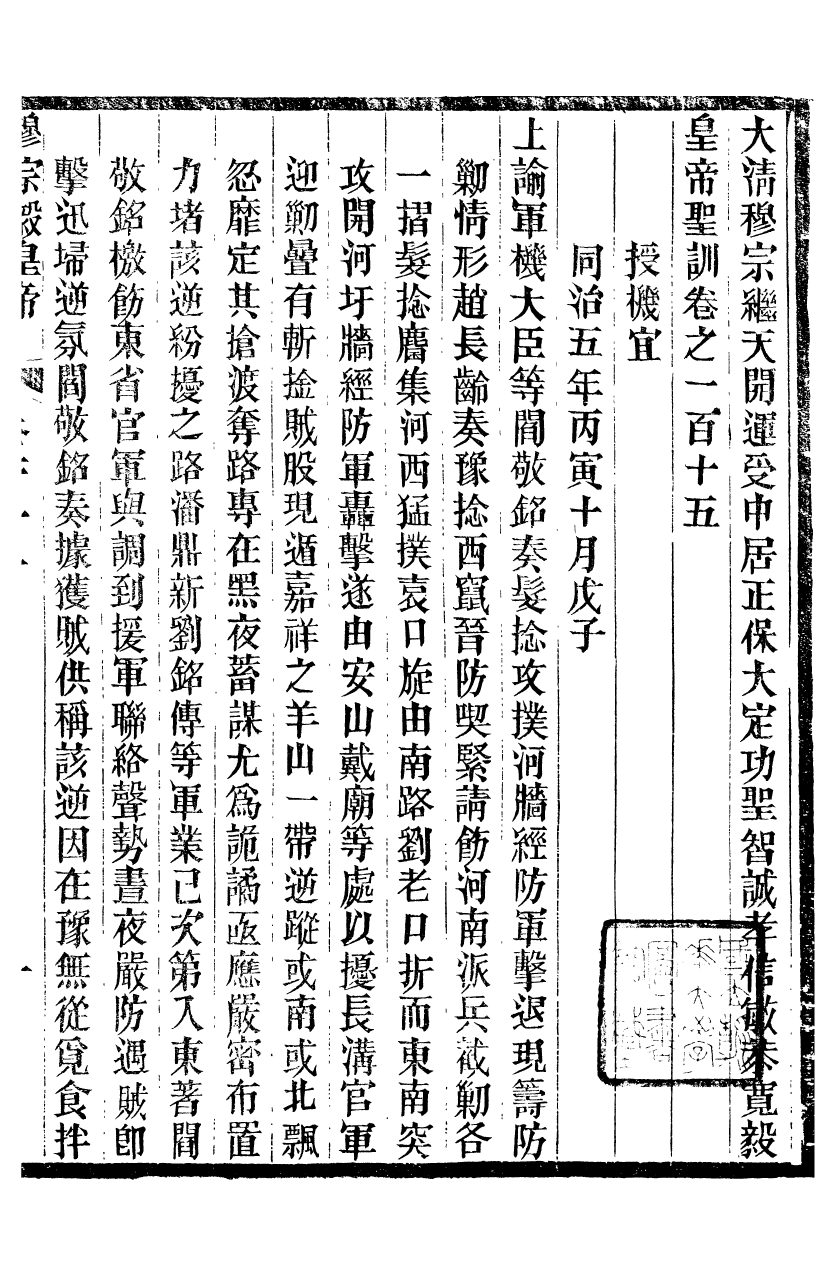 大清穆宗繼天開運受中居正保大定功聖智誠孝信敏恭寬毅
皇帝聖訓卷之一百十五
授機宜
同治五年丙寅十月戊子
上諭軍機大臣等閻敬銘奏髮捻攻撲河牆經防軍擊退現籌防
勦情形趙長齡奏豫捻西竄晉防喫緊請飭河南派兵截勦各
一摺髮捻麕集河西猛撲袁口旋由南路劉老口折而東南突
攻開河圩牆經防軍轟擊遂由安山戴廟等處以擾長溝官軍
迎勦疊有斬捡賊股現遁嘉祥之羊山一帶逆蹤或南或北飄
忽靡定其搶渡奪路專在黑夜蓄謀尤爲詭譎亟應嚴密布置
力堵該逆紛擾之路潘鼎新劉銘傳等軍業已次第入東著閻
敬銘檄飭東省官軍與調到援軍聯絡聲勢晝夜嚴防遇賊卽
擊迅埽逆氛閻敬銘奏據獲賊供稱該逆因在豫無從覓食拌
穆宗毅皇帝
一